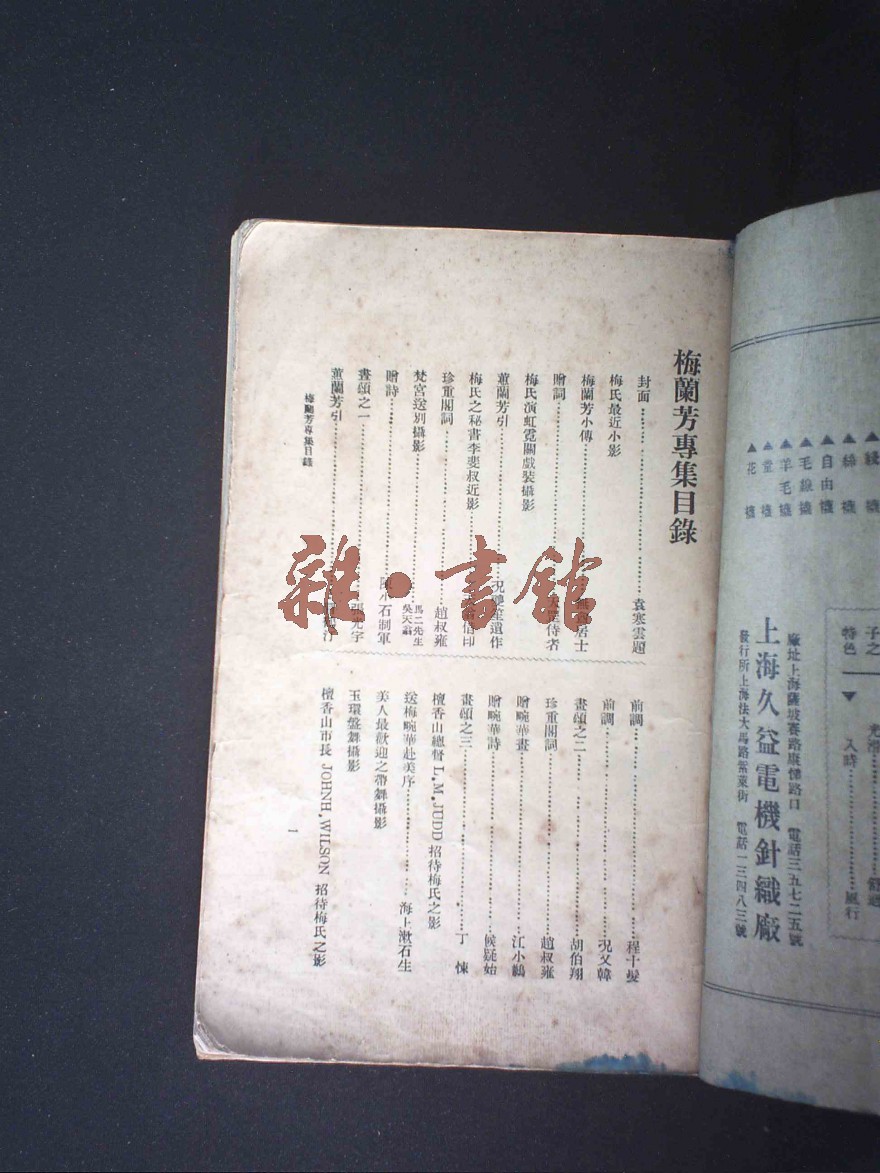 梅蘭芳專集目錄
封面……袁寒雲題
梅氏最近小影
梅蘭芳小傳……居士
贈詞……侍者
梅氏演虹霓關戲裝攝影
蕙蘭芳引……況蕙笙遺作
梅氏之秘書李斐叔近影
珍重閣詞……趙叔雍
梵宮送別攝影……馬二先生 吳天翁
贈詩……陳小石制軍
畫頌之一……張光宇
蕙蘭芳引
前調……程十髮
前調……況又韓
畫頌之二……胡伯翔
珍重閣詞……趙叔雍
贈畹華畫……江小鶼
贈畹華詩……候疑始
畫頌之三……丁悚
檀香山總督 L. M. JUDD 招待梅氏之影
送梅畹華赴美序……海上漱石生
美人最歡迎之帶舞攝影
玉環盤舞攝影
檀香山市長 JOHNH, WILSON 招待梅氏之影
梅蘭芳專集目錄
一
雜·書館
▲絲襪
▲自由襪
▲毛線襪
▲羊毛襪
▲童襪
▲花襪
子之
特色
▼
入時……風行
廠址上海薩坡賽路康悌路口 電話三五七二五號
上海久益電機針織廠
發行所上海法大馬路紫萊街 電話一三四八三號